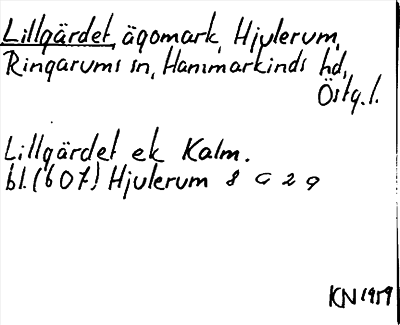 Lillgärdet, ägomark, Hjulerum,
Ringarums sn, Hammarkinds hd,
Östg.l.
Lillgärdet ek Kalm.
bl. (607) Hjulerum 8 G 2 g
KN 1959